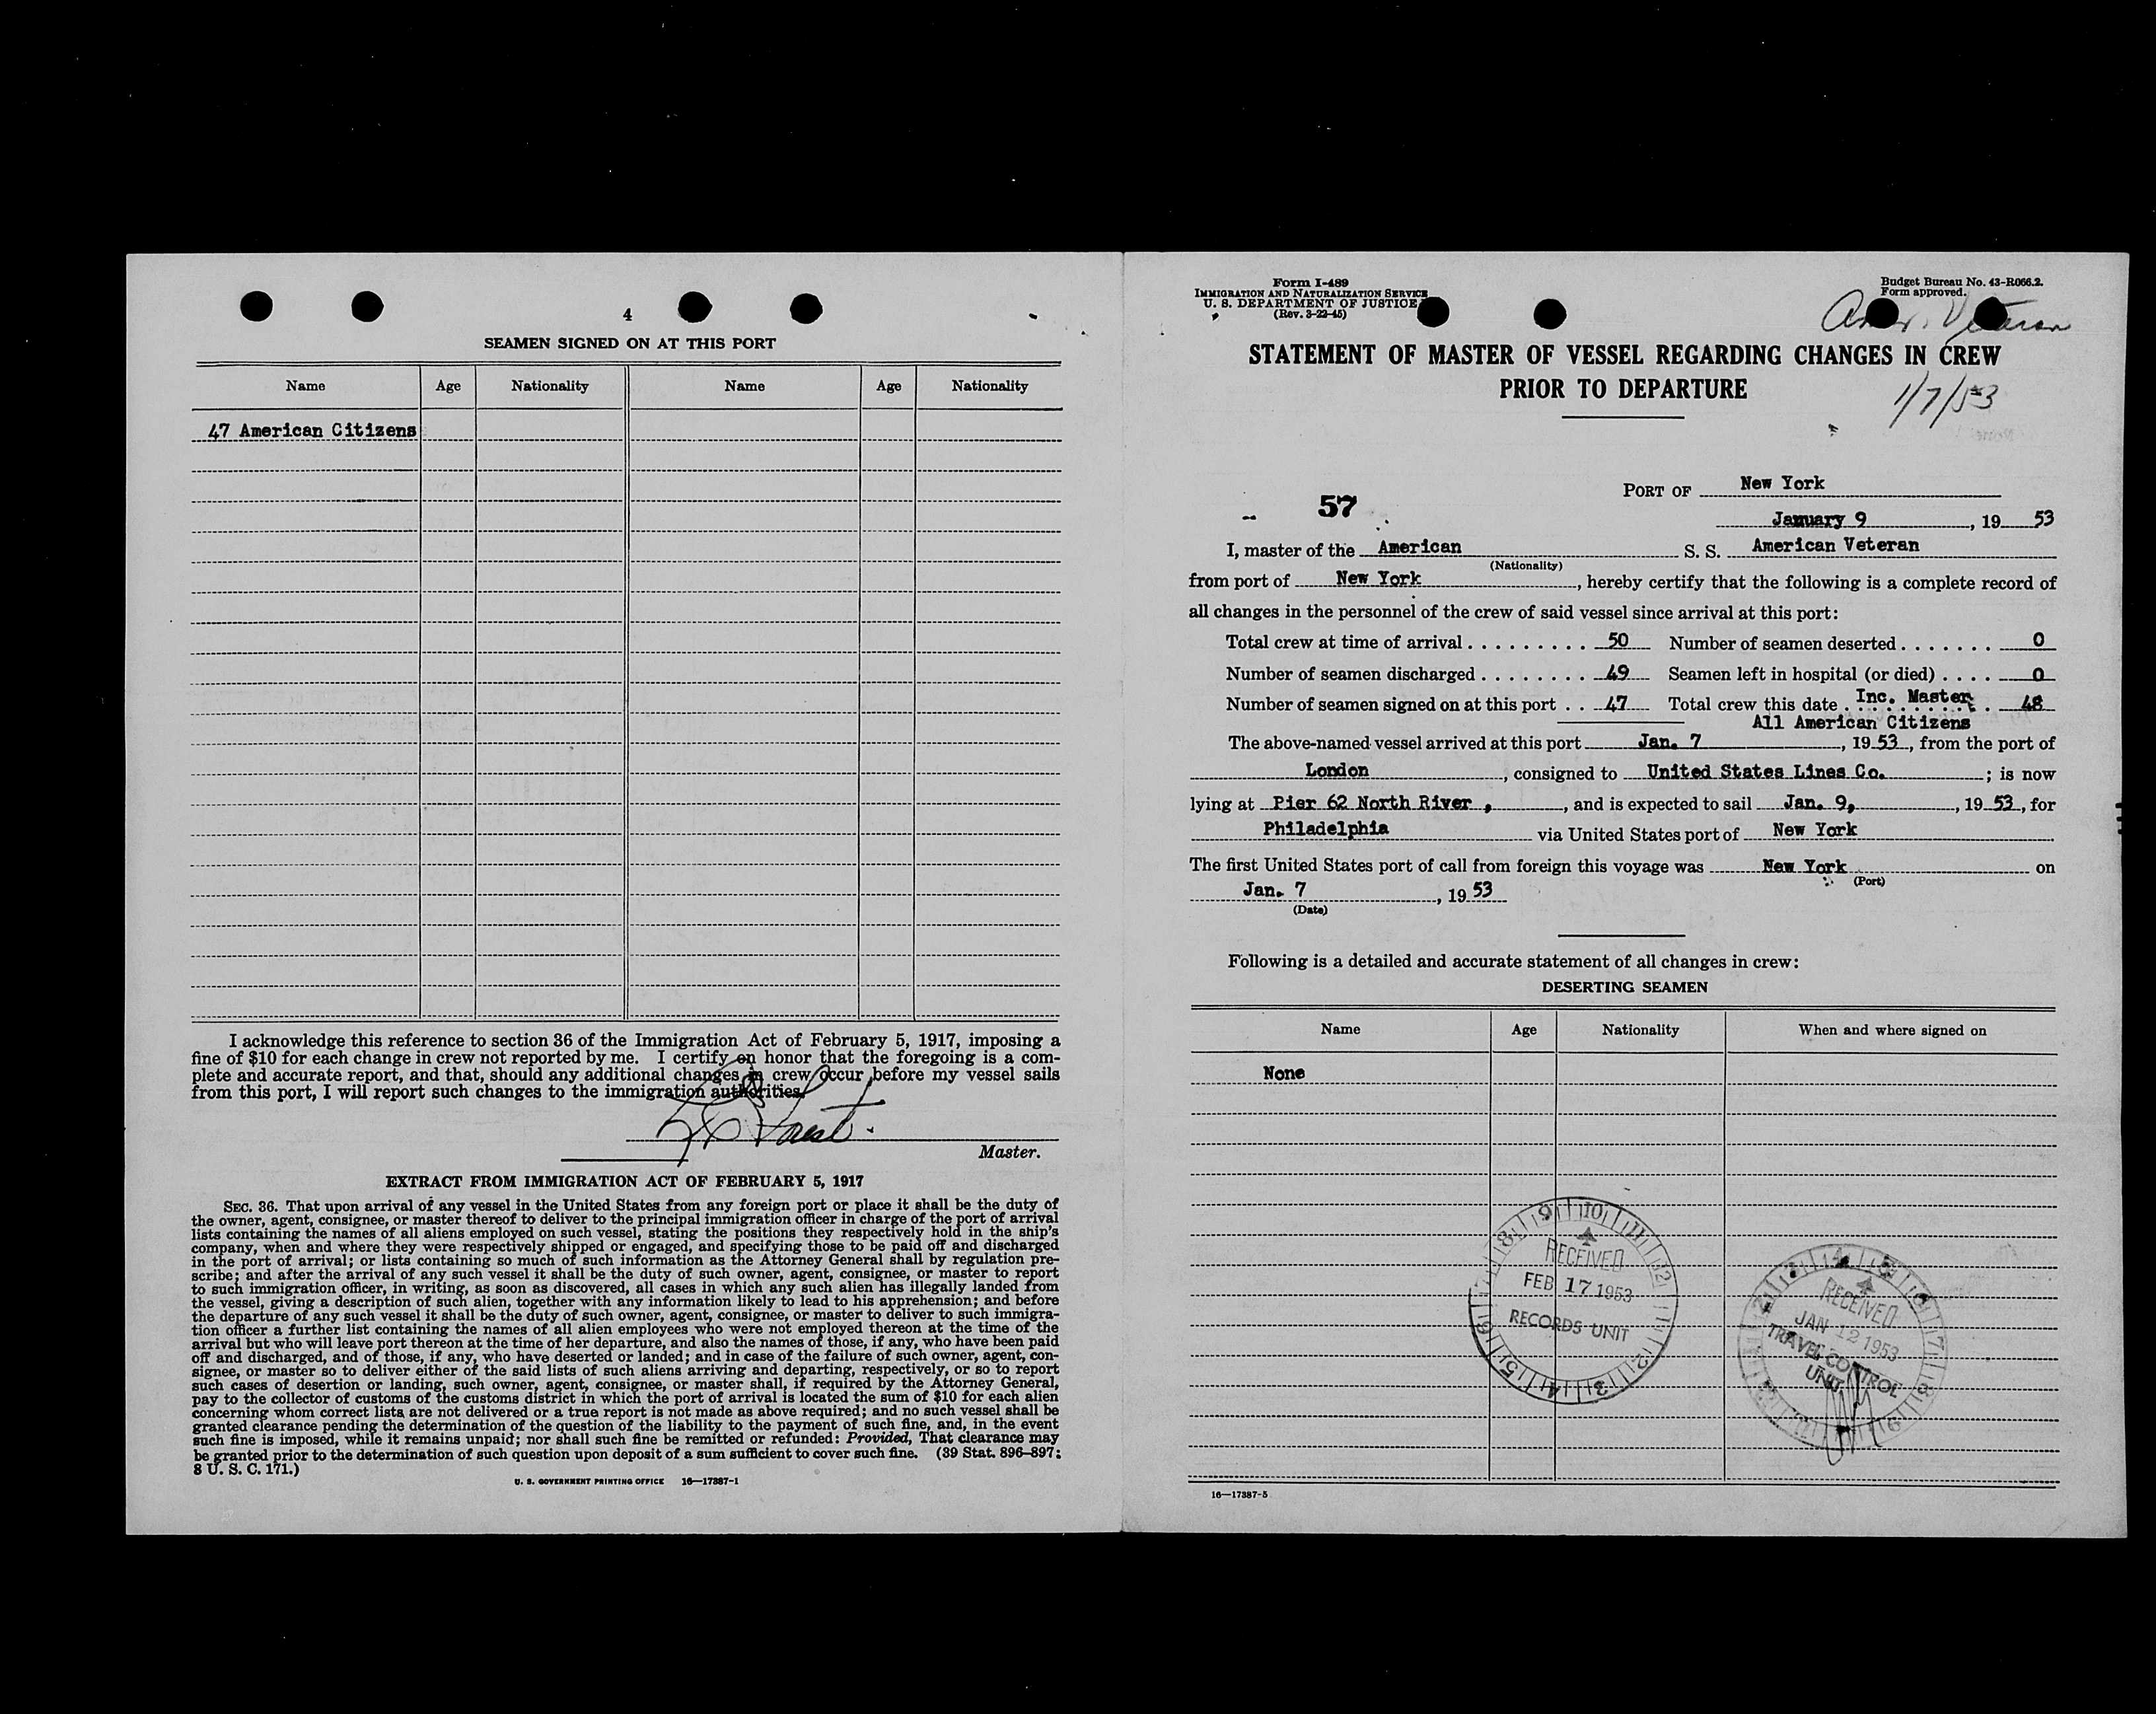 4
SEAMEN SIGNED ON AT THIS PORT
Name Age Nationality Name Age Nationality
47 American Citizens
I acknowledge this reference to section 36 of the Immigration Act of February 5, 1917, imposing a
fine of $10 for each change in crew not reported by me. I certify on honor that the foregoing is a com-
plete and accurate report, and that, should any additional changes in crew occur before my vessel sails
from this port, I will report such changes to the immigration authorities.
Master.
EXTRACT FROM IMMIGRATION ACT OF FEBRUARY 5, 1917
SEC. 36. That upon arrival of any vessel in the United States from any foreign port or place it shall be the duty of
the owner, agent, consignee, or master thereof to deliver to the principal immigration officer in charge of the port of arrival
lists containing the names of all aliens employed on such vessel, stating the positions they respectively hold in the ship's
company, when and where they were respectively shipped or engaged, and specifying those to be paid off and discharged
in the port of arrival; or lists containing so much of such information as the Attorney General shall by regulation pre-
scribe; and after the arrival of any such vessel it shall be the duty of such owner, agent, consignee, or master to report
to such immigration officer, in writing, as soon as discovered, all cases in which any such alien has illegally landed from
the vessel, giving a description of such alien, together with any information likely to lead to his apprehension; and before
the departure of any such vessel it shall be the duty of such owner, agent, consignee, or master to deliver to such immigra-
tion officer a further list containing the names of all alien employees who were not employed thereon at the time of the
arrival but who will leave port thereon at the time of her departure, and also the names of those, if any, who have been paid
off and discharged, and of those, if any, who have deserted or landed; and in case of the failure of such owner, agent, con-
signee, or master so to deliver either of the said lists of such aliens arriving and departing, respectively, or so to report
such cases of desertion or landing, such owner, agent, consignee, or master shall, if required by the Attorney General,
pay to the collector of customs of the customs district in which the port of arrival is located the sum of $10 for each alien
concerning whom correct lists are not delivered or a true report is not made as above required; and no such vessel shall be
granted clearance pending the determination of the question of the liability to the payment of such fine, and, in the event
such fine is imposed, while it remains unpaid; nor shall such fine be remitted or refunded: Provided, That clearance may
be granted prior to the determination of such question upon deposit of a sum sufficient to cover such fine. (39 Stat. 896–897;
8 U. S. C. 171.)
U. S. GOVERNMENT PRINTING OFFICE 16—17387-1
Form I-489
IMMIGRATION AND NATURALIZATION SERVICE
U. S. DEPARTMENT OF JUSTICE
(Rev. 3-22-45)
Budget Bureau No. 43-R066.2.
Form approved.
Veteran
STATEMENT OF MASTER OF VESSEL REGARDING CHANGES IN CREW
PRIOR TO DEPARTURE
1/7/53
57
PORT OF New York
January 9, 19 53
I, master of the American S. S. American Veteran
(Nationality)
from port of New York, hereby certify that the following is a complete record of
all changes in the personnel of the crew of said vessel since arrival at this port:
Total crew at time of arrival . . . . . . . . . 50 Number of seamen deserted . . . . . . . 0
Number of seamen discharged . . . . . . . . 49 Seamen left in hospital (or died) . . . . 0
Number of seamen signed on at this port . . 47 Total crew this date . Inc. Master . 48
All American Citizens
The above-named vessel arrived at this port Jan. 7, 19 53, from the port of
London, consigned to United States Lines Co. ; is now
lying at Pier 62 North River , , and is expected to sail Jan. 9, , 19 53, for
Philadelphia via United States port of New York
The first United States port of call from foreign this voyage was New York on
(Port)
Jan. 7, 19 53
(Date)
Following is a detailed and accurate statement of all changes in crew:
DESERTING SEAMEN
Name Age Nationality When and where signed on
None
RECEIVED
FEB 17 1953
RECORDS UNIT
RECEIVED
JAN 12 1953
TRAVEL CONTROL
UNIT
16—17387-5